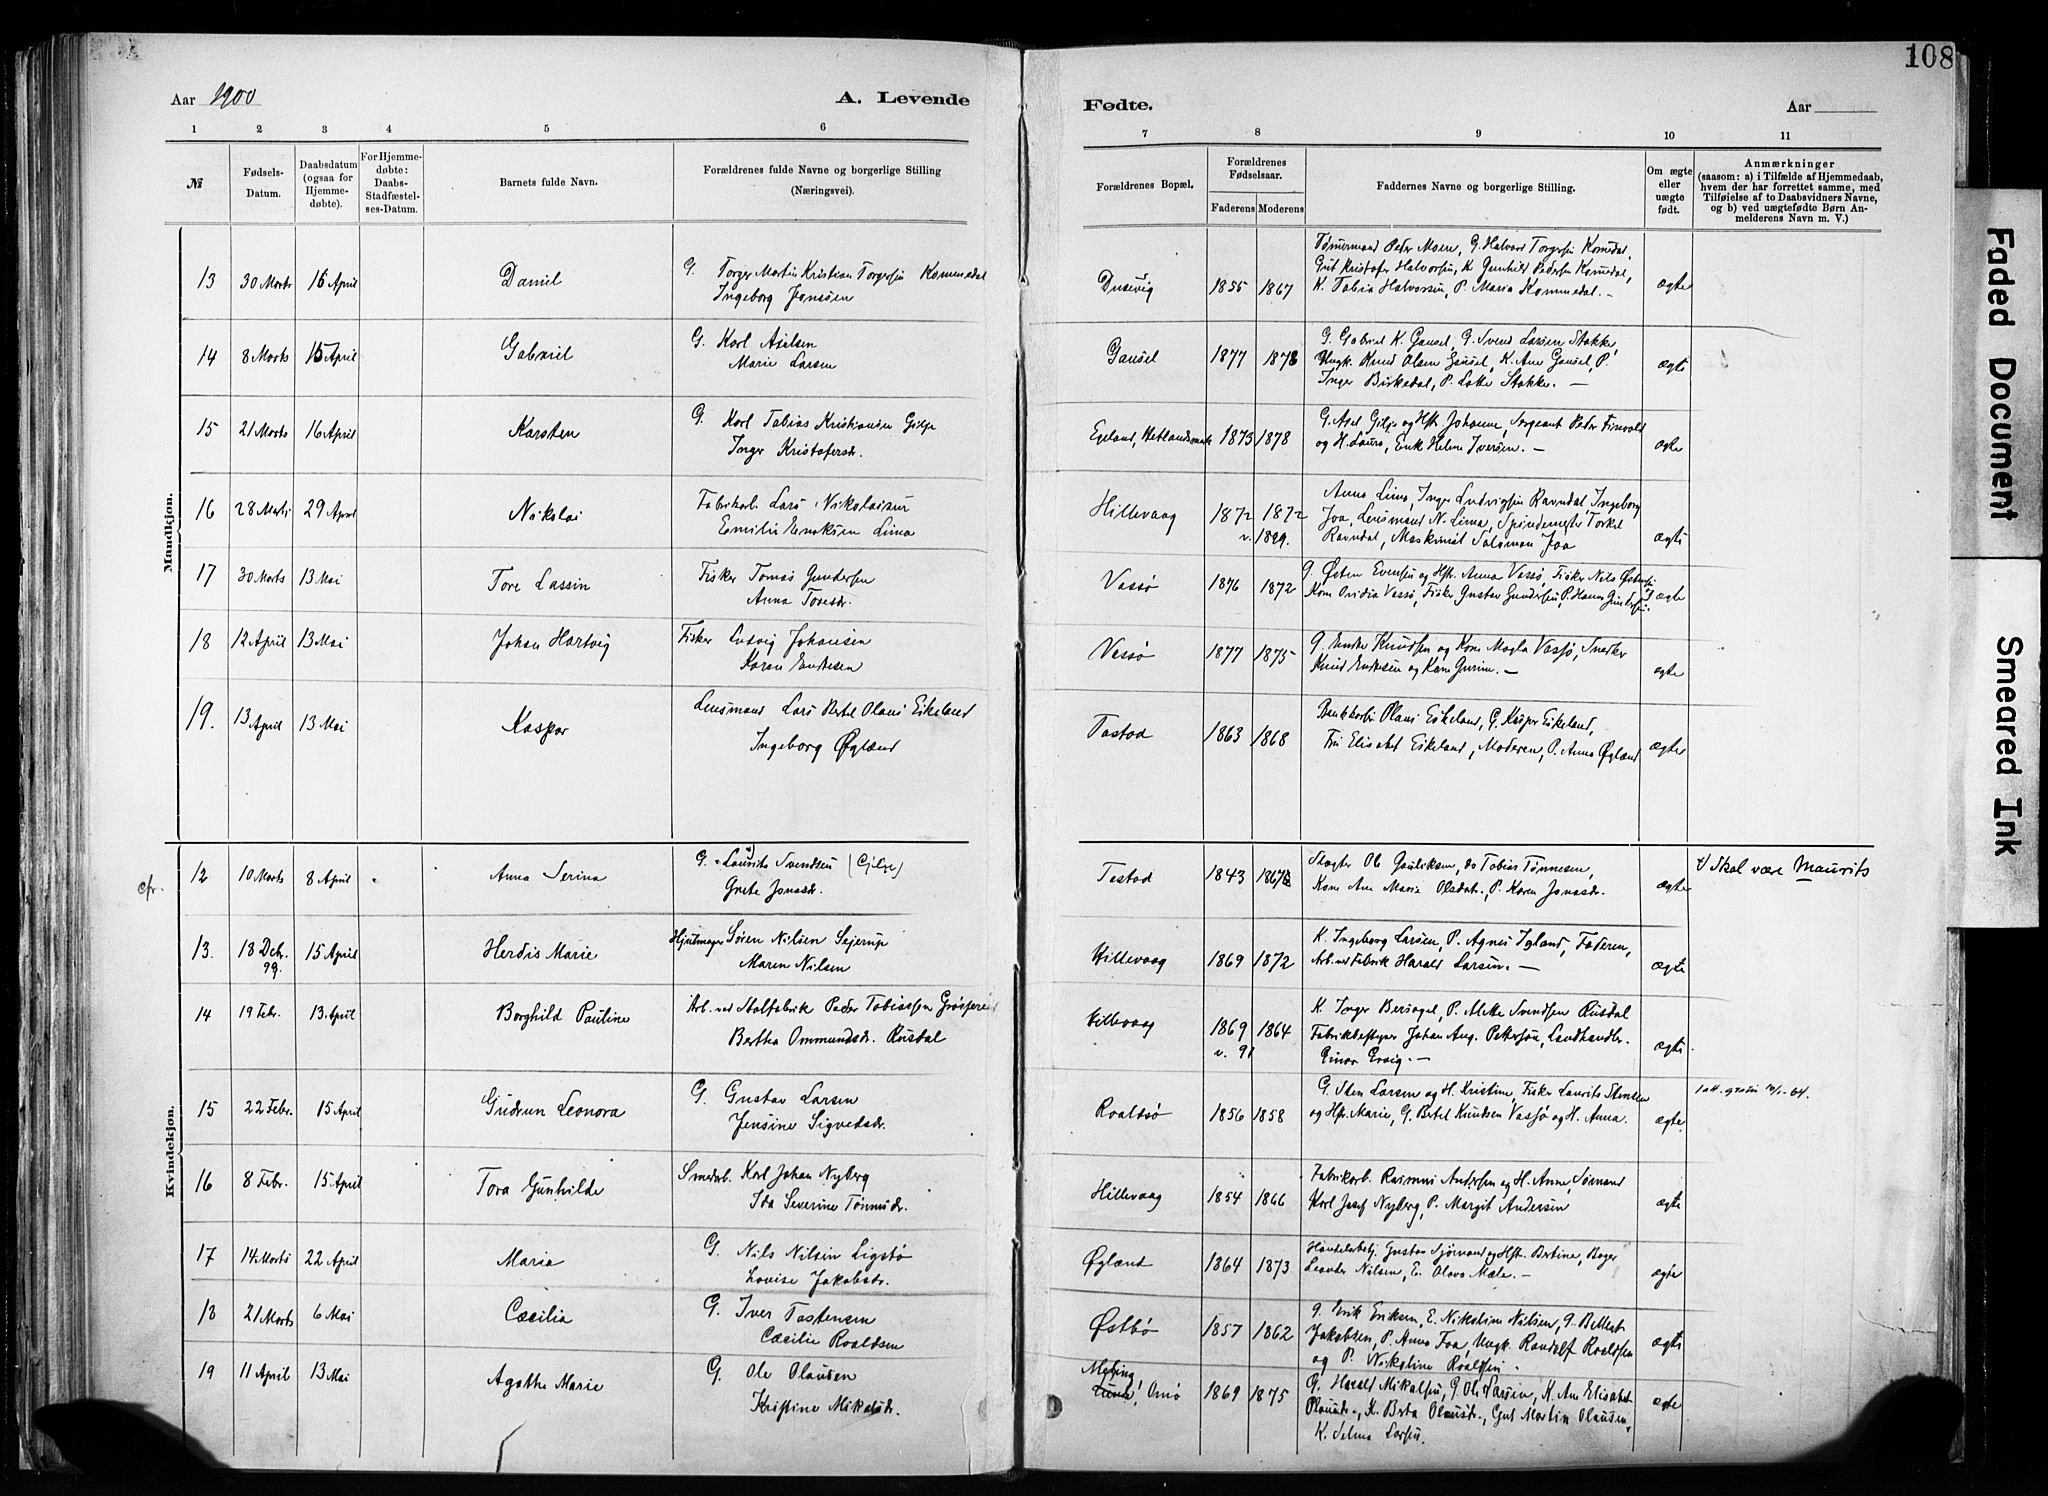 108
Aar 1900
A. Levende
Fødte.
Aar
1 2 3 4 5 6 7 8 9 10 11
№
Fødsels-Datum.
Daabsdatum (ogsaa for Hjemmedøbte).
For Hjemmedøbte: Daabs-Stadfæstelses-Datum.
Barnets fulde Navn.
Forældrenes fulde Navne og borgerlige Stilling (Næringsvei).
Forældrenes Bopæl.
Forældrenes Fødselsaar.
Faderens Moderens
Faddernes Navne og borgerlige Stilling.
Om ægte eller uægte født.
Anmærkninger
(saasom: a) i Tilfælde af Hjemmedaab,
hvem der har forrettet samme, med
Tilføielse af to Daabsvidners Navne,
og b) ved uægtefødte Børn Anmelderens Navn m. V.)
Mandkjøn.
13 30 Marts 16 April Daniel G. Torger Martin Kristian Torgersen Kommedal
Ingeborg Jonssen
Dusevig 1855 1867
Tømermand Peder Moen, G. Halvard Torgersen Komedal,
Gut Kristofer Halvorsen, K. Gunhild Pedersen Komedal,
K. Tobia Halvorsen, P. Maria Kommedal. —
ægte
14 8 Marts 15 April Gabriel G. Karl Axelsen
Marie Larsen
Gausel 1877 1878
G. Gabriel K. Gausel, G. Svend Larsen Stokke,
Ungk. Knud Olsen Gausel, K. Ane Gausel, P.
Inger Birkedal, P. Lotte Stokke. —
ægte
15 21 Marts 16 April Karsten G. Karl Tobias Kristiansen Gilje
Inger Kristofersdr.
Egeland, Hetlandsmark 1873 1878
G. Axel Gilje og Hst. Johanne, Sergeant Peder
og H. Laura, Enk Helene Iversen. —
ægte
16 28 Marts 29 April Nikolai Fabrikarb. Lars Nikolaisen
Emilie Eriksen Lima
Hillevaag 1872 1872
v. 1899.
Anna Lima, Inger Ludvigsen Ravndal, Ingeborg
Joa, Lensmand N. Lima, Spindemester Torkel
Ravndal, Maskinist Salomon Joa
ægte
17 30 Marts 13 Mai Tore Lassin Fisker Tomas Gundersen
Anna Toresdr.
Vassø 1876 1872
G. Østen Evensen og Hst. Anna Vassø, Fisker Nils Østensen
Kone Ovidia Vassø, Fisker Gustav Gundersen, P. Hanna Gundersen.
ægte
18 12 April 13 Mai Johan Hartvig Fisker Ludvig Johansen
Karen Endresen
Vassø 1877 1875
G. Endre Knudsen og Kone Magla Vassø, Snekker
Knud Endresen og Kone Gurine. —
ægte
19. 13 April 13 Mai Kaspar Lensmand Lars Bertel Olaus Eikeland
Ingeborg Øglænd
Tastad 1863 1868
Olaus Eikeland, G. Kasper Eikeland,
Fru Elisabet Eikeland, Moderen, P. Anna Øglænd
ægte
Kvindekjøn.
cfr.
12 10 Marts 8 April Anna Serina G. Laurits Svendsen (Gilje)
Grete Jonasdr.
Tastad 1843 1867
Slagter Ol. Gauliksen, do Tobias Tønnesen,
Kone Ane Marie Olsdat., P. Karen Jonasdr.
ægte
Skal være Maurits
13. 18 Dcbr. 99. 15 April Herdis Marie Hjulmager Søren Nilsen Sejerup
Maren Nilsen
Hillevaag 1869 1872
K. Ingeborg Larsen, P. Agnes Igland, Faderen,
Arb. ved Fabrik Harald Larsen. —
ægte
14 19 Febr. 13 April Borghild Pauline Arb. ved Stolfabrik Peder Tobiassen
Bertha Ommundsdr. Rusdal
Hillevaag 1869 1864
v. 91
K. Inger Bersagel, P. Mette Svendsen Rusdal
Johan Aug. Pettersen, Landhandler.
Einar Eraig. —
ægte.
15 22 Febr. 15 April Gudrun Leonora G. Gustav Larsen
Jensine Sigvedsdr.
Roaldsø 1856 1858
G. Sten Larsen og H. Kristine, Fisker Laurits Stensen
og Hst. Marie, G. Bertel Knudsen Vassø og H. Anna.
ægte.
16 8 Febr. 15 April Tora Gunhilde Smedarb. Karl Johan Nyberg
Ida Severine Tønnesdr.
Hillevaag 1854 1866
Fabrikarb. Rasmus Andersen og H. Anne, Sømand
Karl Josef Nyberg, P. Margit Andersen
ægte
17 14 Marts 22 April Maria G. Nils Nilsen Ligstø
Lovise Jakobsdr.
Øglænd 1864 1873
Gustav Sjørsand og Hst. Bertine, Bager
Leander Nilsen, E. Olava Mæle. —
ægte
18 21 Marts 6 Mai Cæcilia G. Iver Tostensen
Cæcilie Roaldsen
Østbø 1857 1862
G. Erik Eriksen, E. Nikoline Nilsen, G. Bertel
Jakobsen, P. Anna Joa, Ungk. Randolf Roaldsen
og P. Nikoline Roaldsen.
ægte
19 11 April 13 Mai Agathe Marie G. Ole Olausen
Kristine Mikalsdr.
Meling, Omø 1869 1875
G. Harald Mikalsen, G. Ole Larsen, K. Ane Elisabet
Olausdr., K. Berta Olausdr., Gut Martin Olausen,
K. Selma Larsen.
ægte
Faded Document
Smeared Ink